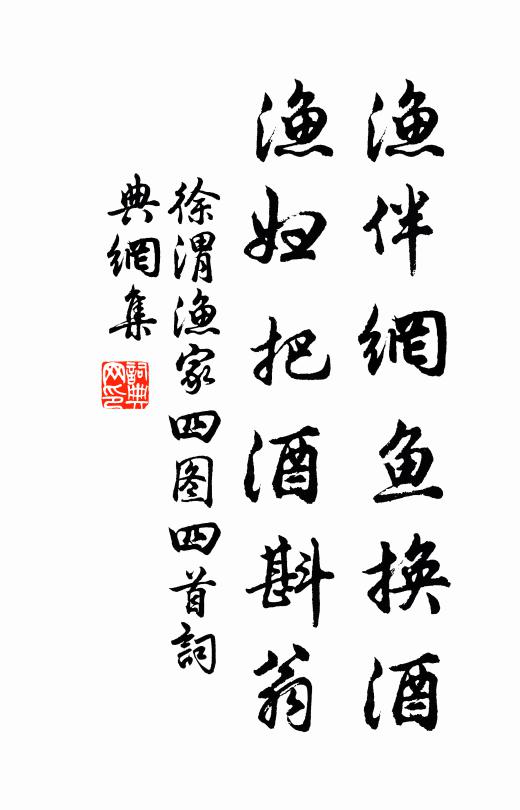 漁伴網魚換酒
漁妇把酒斟翁
徐渭漁家四图四首詞
典網集
詞典网印